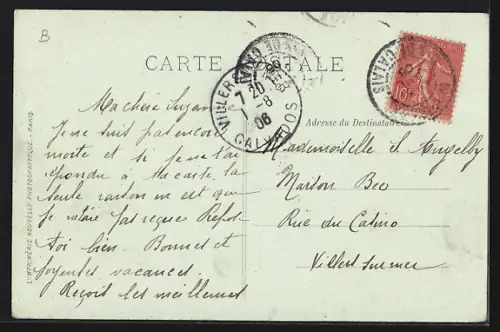 B
CARTE POSTALE
VILLERS
7 20
7-8
06
CALVADOS
CALAIS
10
Adresse du Destinataire
L'IMPRIMERIE NOUVELLE PHOTOGRAPHIQUE - PARIS.
Ma chère Suzanne
Je ne suis pas encore
morte et si je ne t'ai
répondu à ta carte, la
seule raison en est que
je l'ai pas reçue Repose
toi bien. Bonnes et
joyeuses vacances.
Reçois les meilleures
Mademoiselle d'Angelby
Maison Bee
Rue du Casino
Villers sur mer